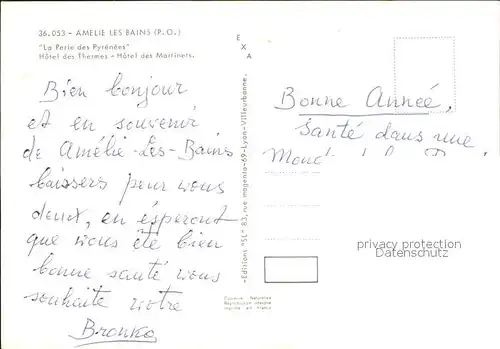 36.053 - AMELIE LES BAINS (P.O.)
"La Perle des Pyrénées"
Hôtel des Thermes - Hôtel des Martinets.
Bien bonjour
et en souvenir
de Amélie-Les-Bains
baissers pour vous
deux, en ésperont
que vous éte bien
bonne santé vous
souhaite votre
Bronko
EXA
-Editions "SL" 83, rue magenta-69-Lyon-Villeurbanne.
Bonne Anneé,
Santé dans une
privacy protection
Datenschutz
Couleurs Naturelles
Reproduction interdite
Imprimé en France